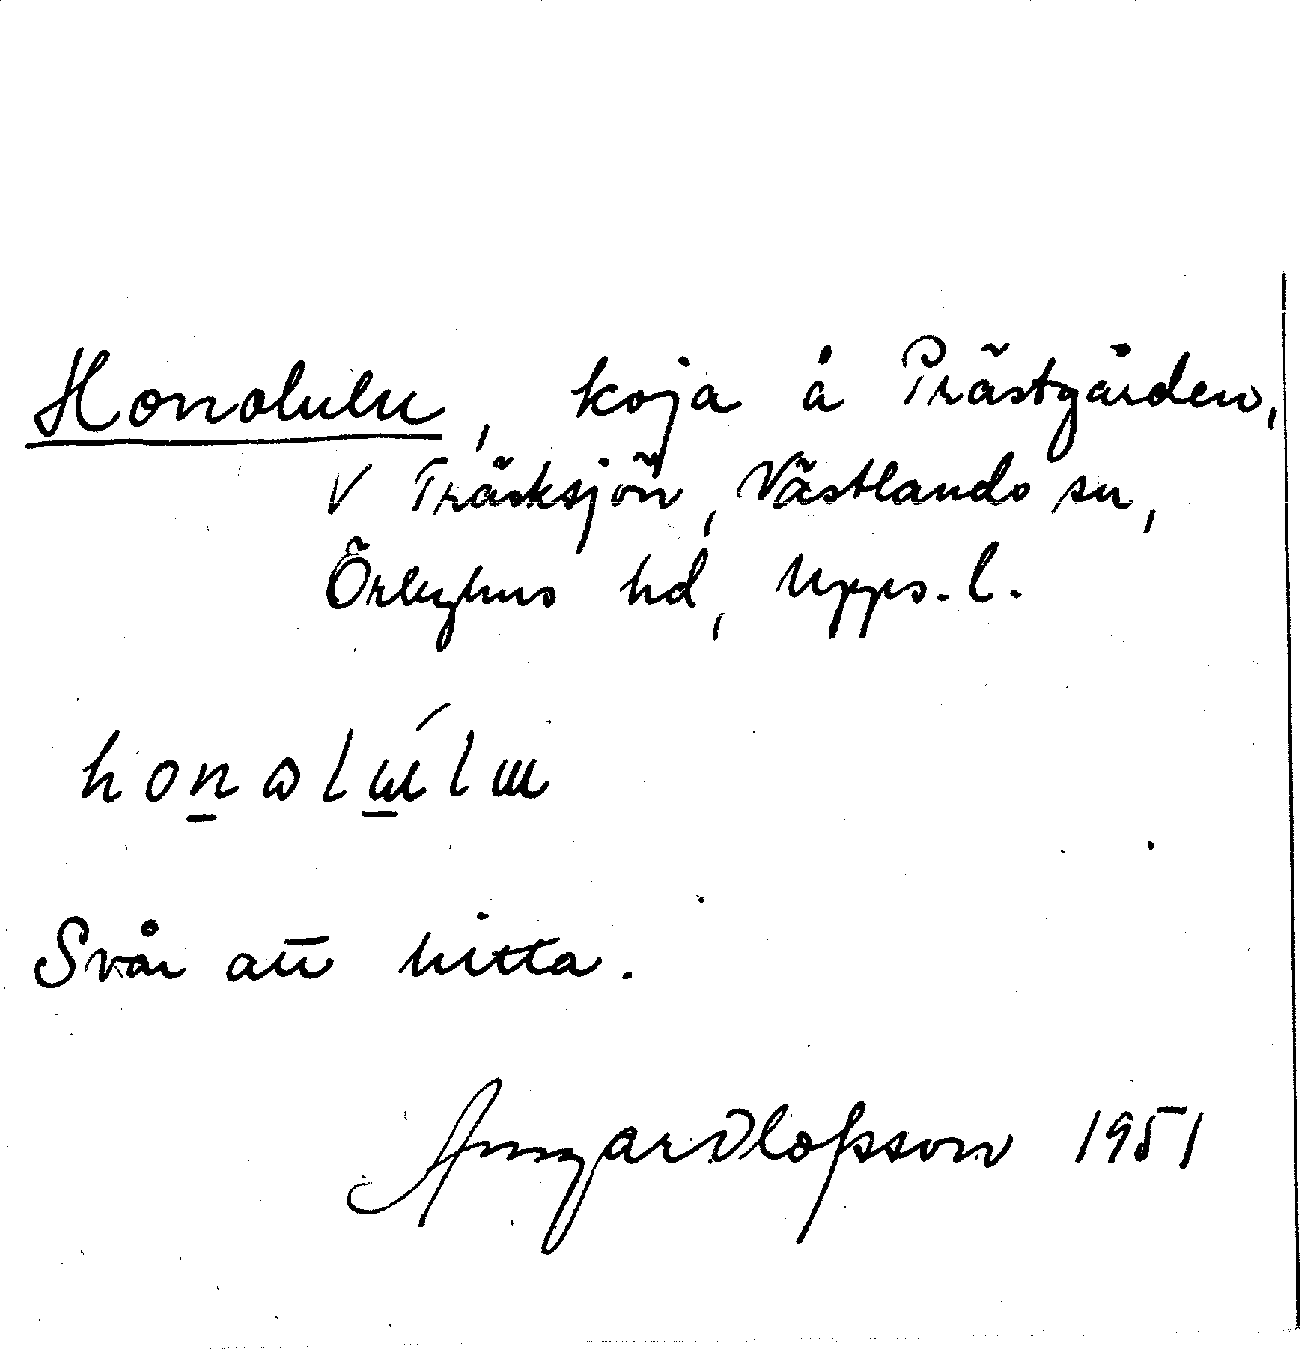 Honolulu, koja å Prästgården,
V Träsksjön, Västlands sn,
Örbyhus hd, Upps. l.
honɷlɯ́lɯ
Svår att hitta.
Olofsson 1951